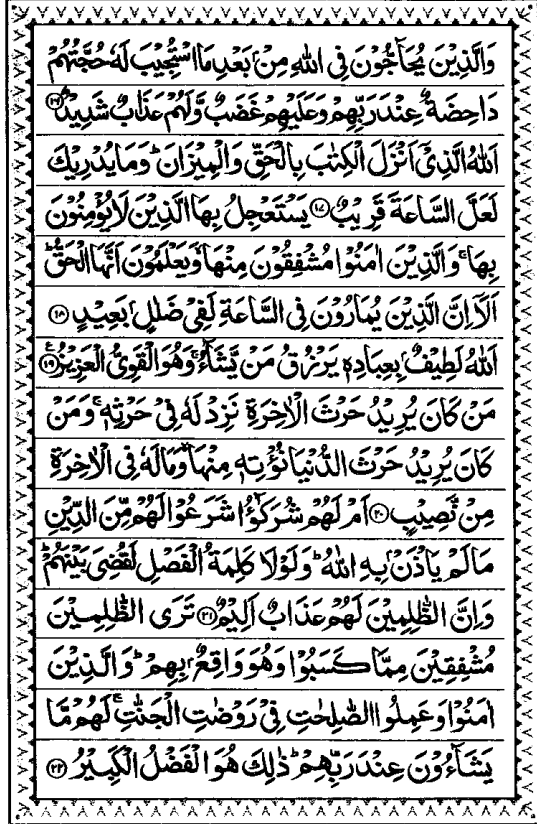 وَالَّذِيْنَ يُحَآجُّوْنَ فِى اللّٰهِ مِنْۢ بَعْدِ مَا اسْتُجِيْبَ لَهٗ حُجَّتُهُمْ
دَاحِضَةٌ عِنْدَ رَبِّهِمْ وَعَلَيْهِمْ غَضَبٌ وَّلَهُمْ عَذَابٌ شَدِيْدٌ ۝۱۶
اَللّٰهُ الَّذِىْٓ اَنْزَلَ الْكِتٰبَ بِالْحَقِّ وَالْمِيْزَانَ ؕ وَمَا يُدْرِيْكَ
لَعَلَّ السَّاعَةَ قَرِيْبٌ ۝۱۷ يَسْتَعْجِلُ بِهَا الَّذِيْنَ لَا يُؤْمِنُوْنَ
بِهَا ۚ وَالَّذِيْنَ اٰمَنُوْا مُشْفِقُوْنَ مِنْهَا ۙ وَيَعْلَمُوْنَ اَنَّهَا الْحَقُّ ؕ
اَلَآ اِنَّ الَّذِيْنَ يُمَارُوْنَ فِى السَّاعَةِ لَفِىْ ضَلٰلٍۢ بَعِيْدٍ ۝۱۸
اَللّٰهُ لَطِيْفٌۢ بِعِبَادِهٖ يَرْزُقُ مَنْ يَّشَآءُ ۚ وَهُوَ الْقَوِىُّ الْعَزِيْزُ ۝۱۹
مَنْ كَانَ يُرِيْدُ حَرْثَ الْاٰخِرَةِ نَزِدْ لَهٗ فِىْ حَرْثِهٖ ۚ وَمَنْ
كَانَ يُرِيْدُ حَرْثَ الدُّنْيَا نُؤْتِهٖ مِنْهَا ۙ وَمَا لَهٗ فِى الْاٰخِرَةِ
مِنْ نَّصِيْبٍ ۝۲۰ اَمْ لَهُمْ شُرَكٰٓؤُا شَرَعُوْا لَهُمْ مِّنَ الدِّيْنِ
مَا لَمْ يَاْذَنْۢ بِهِ اللّٰهُ ؕ وَلَوْلَا كَلِمَةُ الْفَصْلِ لَقُضِىَ بَيْنَهُمْ ؕ
وَاِنَّ الظّٰلِمِيْنَ لَهُمْ عَذَابٌ اَلِيْمٌ ۝۲۱ تَرَى الظّٰلِمِيْنَ
مُشْفِقِيْنَ مِمَّا كَسَبُوْا وَهُوَ وَاقِعٌۢ بِهِمْ ؕ وَالَّذِيْنَ
اٰمَنُوْا وَعَمِلُوا الصّٰلِحٰتِ فِىْ رَوْضٰتِ الْجَنّٰتِ ۚ لَهُمْ مَّا
يَشَآءُوْنَ عِنْدَ رَبِّهِمْ ؕ ذٰلِكَ هُوَ الْفَضْلُ الْكَبِيْرُ ۝۲۲